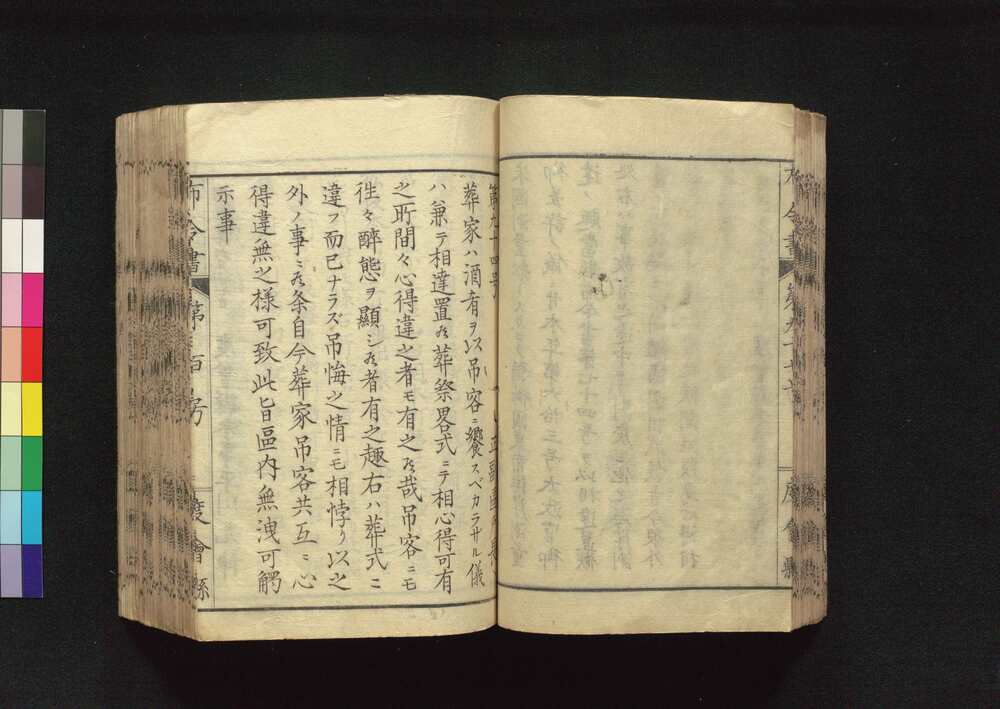 布令書
度會縣
葬家ハ酒肴ヲ以吊客ニ饗スベカラサル儀
ハ兼テ相達置候葬祭畧式ニテ相心得可有
之所間々心得違之者モ有之候哉吊客ニモ
徃々醉態ヲ顯シ候者有之趣右ハ葬式ニ
違フ而已ナラズ吊悔之情ニモ相悖リ以之
外ノ事ニ候条自今葬家吊客共互ニ心
得違無之様可致此旨區内無洩可觸
示事
布令書
第百号
度會縣